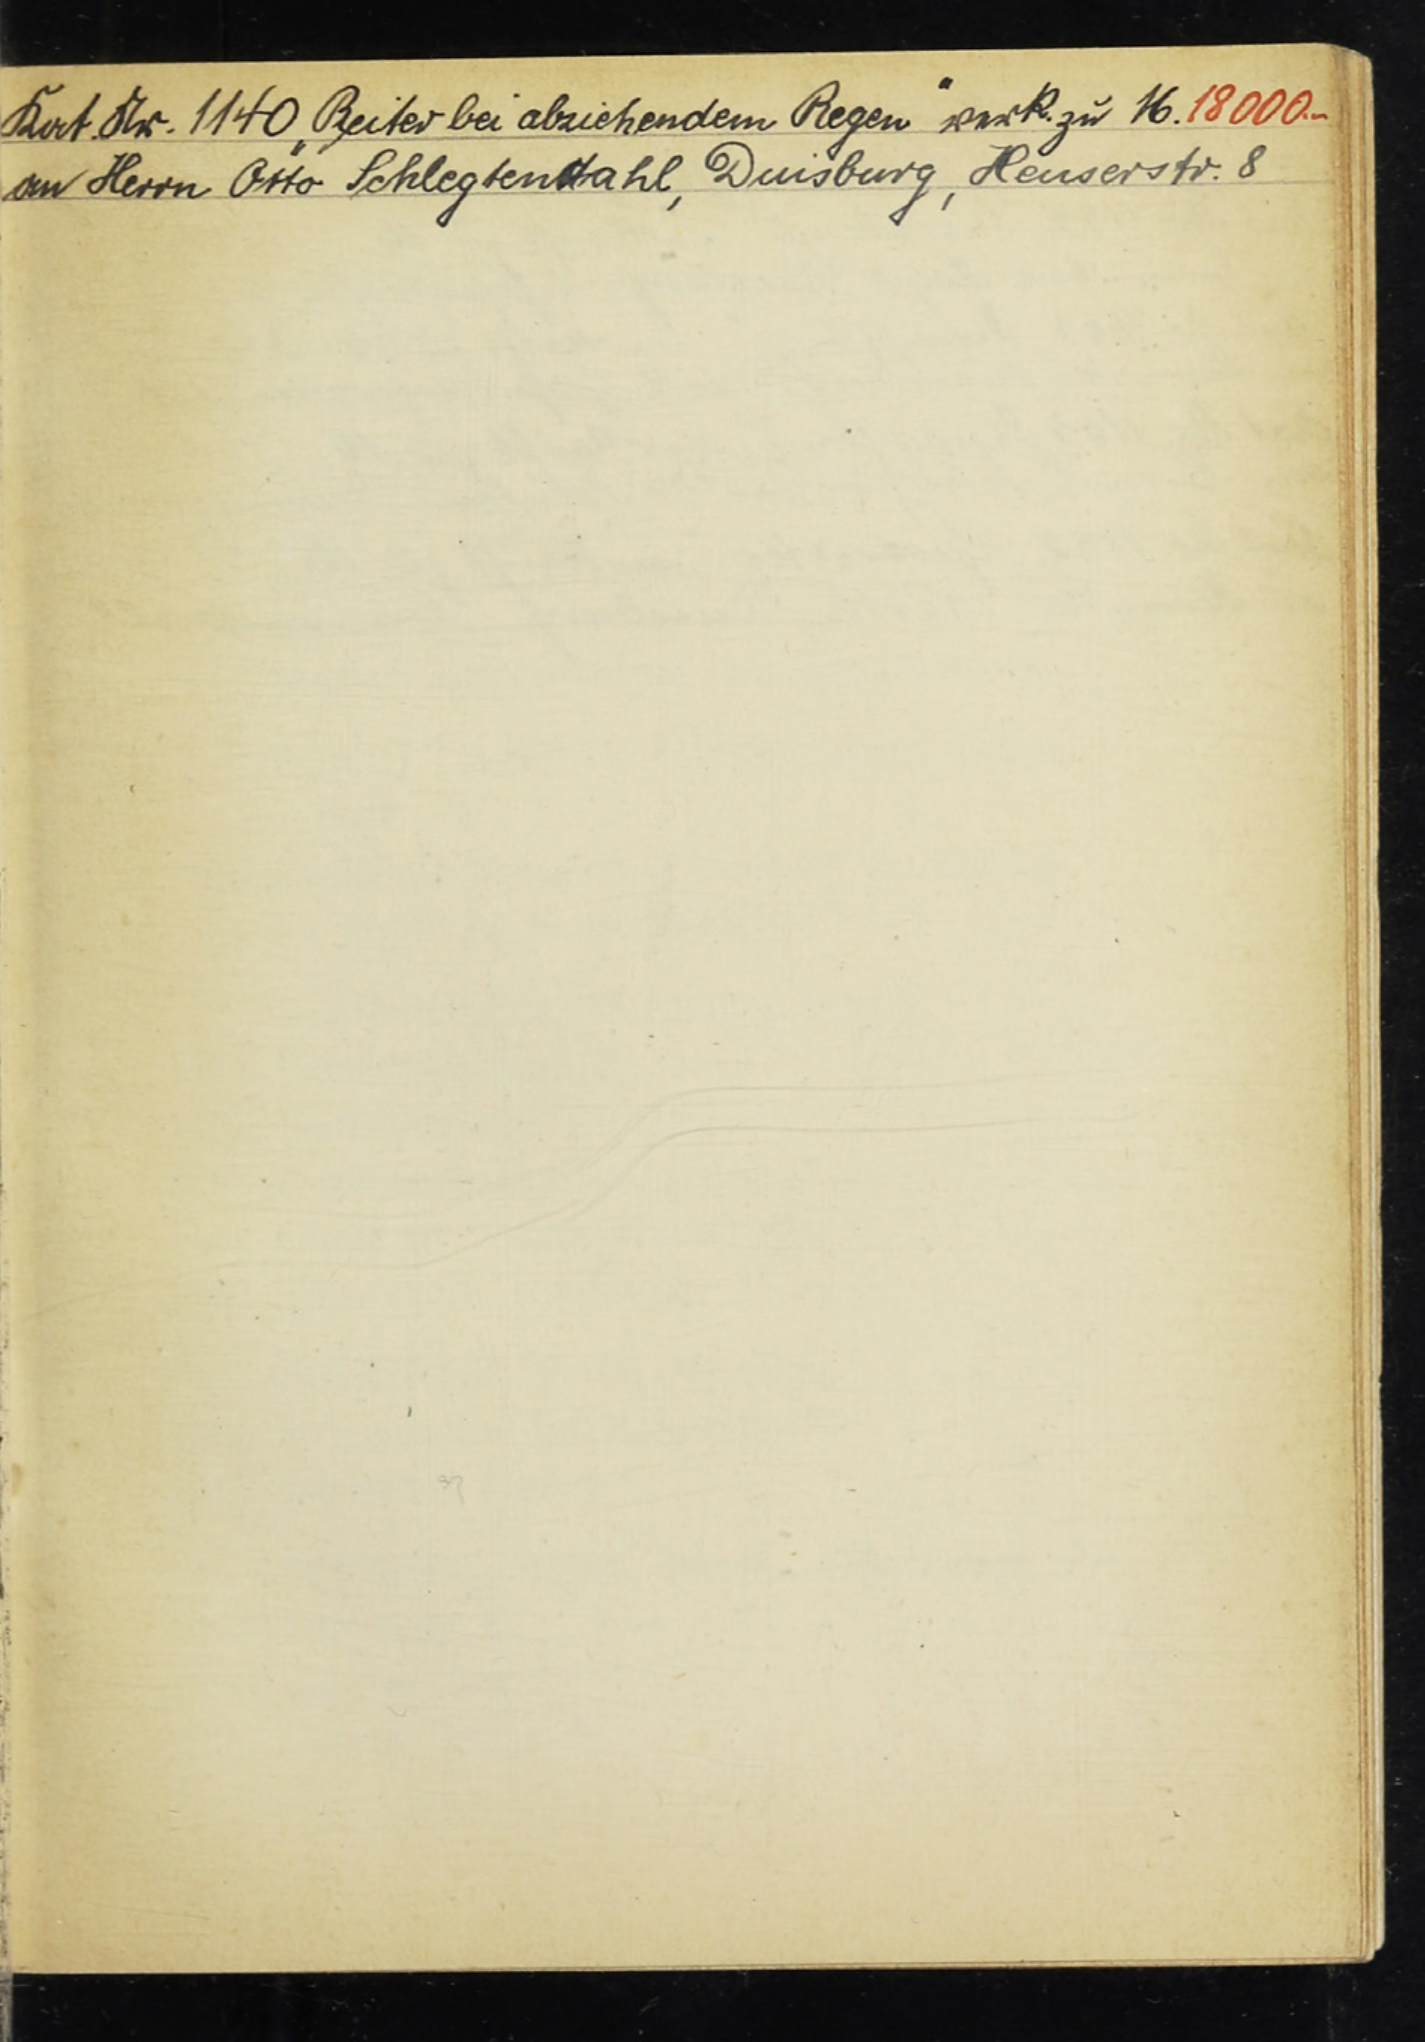 Kat. Nr. 1140 „Reiter bei abziehendem Regen" verk. zu M. 18000.-
an Herrn Otto Schlegtendahl, Duisburg, Heuserstr. 8